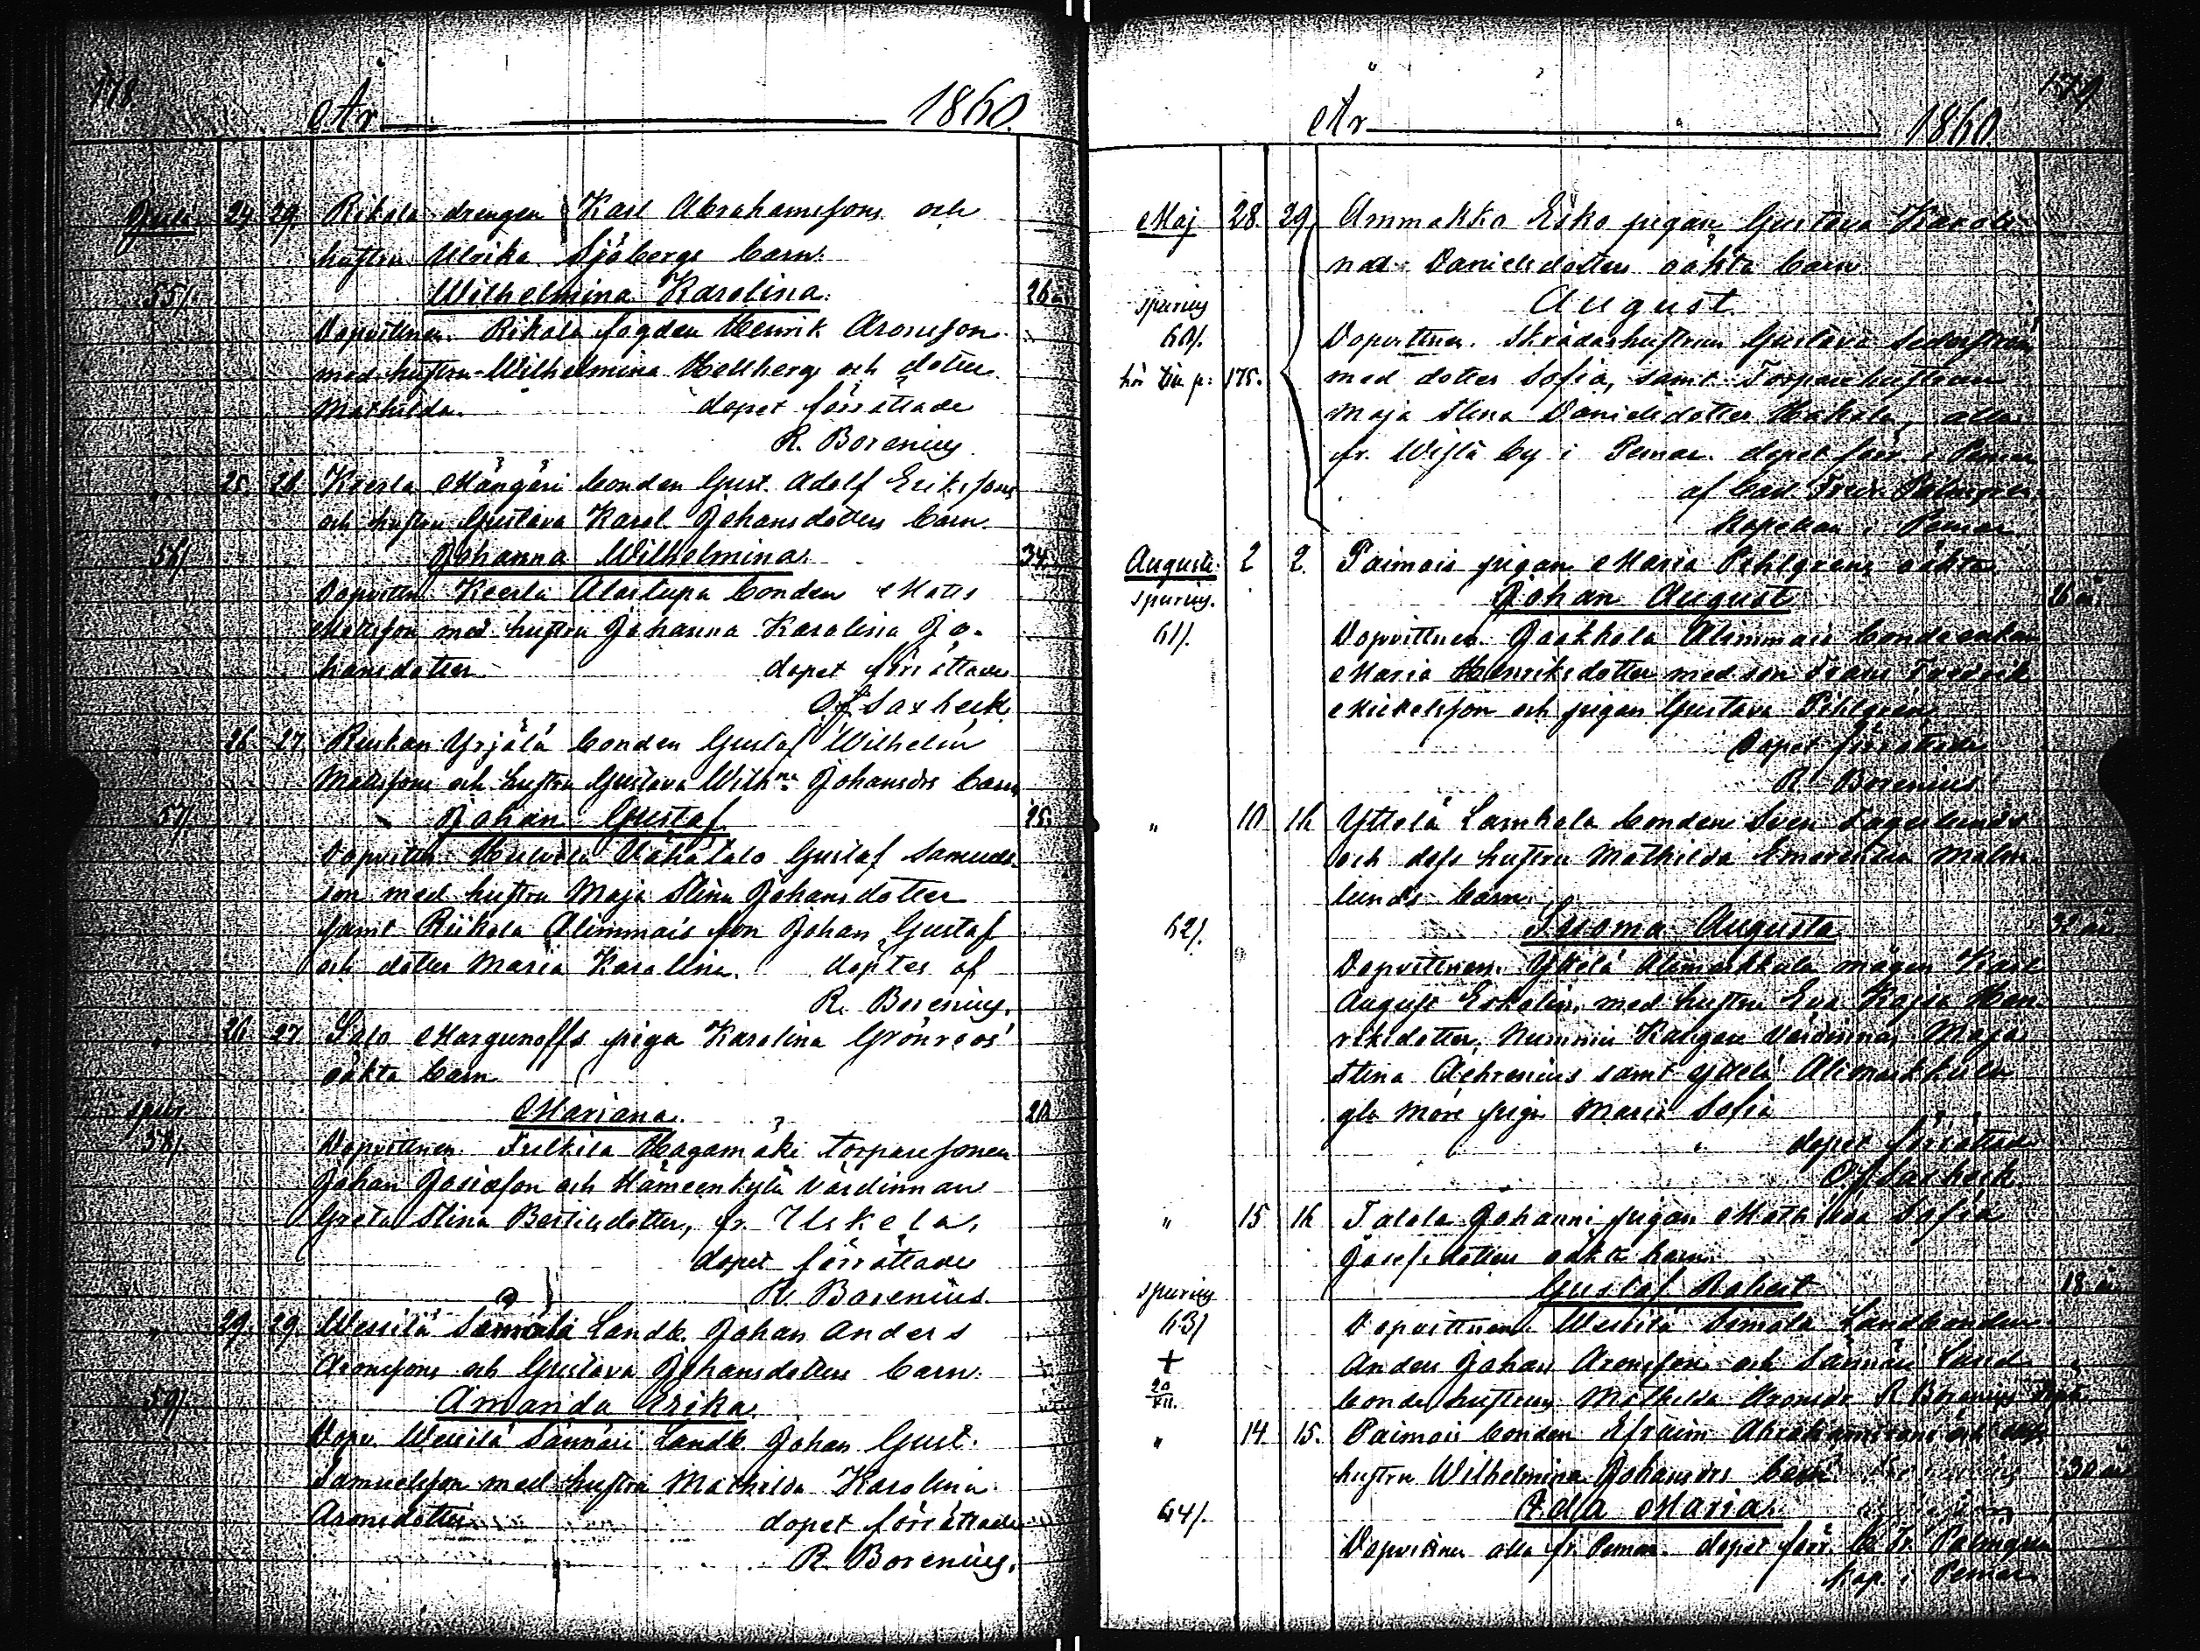 178.
År 1860.
Juli 24. 29. Rikala drengen Karl Abrahamssons och
hustru Ulrika Sjöbergs barn:
55/. Wilhelmina Karolina. 26 å.
Dopvittnen. Rikala fogden Henrik Aronsson
med hustru Wilhelmina Hellberg och dotter
Mathilda. dopet förrättade
R. Borenius.
" 25. 26. Kserla Mängäri bonden Gust. Adolf Eriksons
och hustru Gustava Karol. Johansdotters barn.
56/. Johanna Wilhelmina. 34.
Dopvittn. Keerla Alastupa bonden Matts
Mattsson med hustru Johanna Karolina Jo-
hansdotter dopet förrättade
Of. Saxbeck.
" 26. 27. Ruskan Yrjälä bonden Gustaf Wilhelm
Mattssons och hustru Gustava Wilhna Johansdrs barn
57/. Johan Gustaf. 25.
Dopvittn. Vähätalo Gustaf Samuels-
son med hustru Maja Stina Johansdotter
samt Riikala Alimmais son Johan Gustaf
och dotter Maria Karolina. döptes af
R. Borenius.
" 26. 27. Salo Margunoffs piga Karolina Grönroos'
oäkta barn
spur. Mariana. 20
58/. Dopvittnen. Hagamäki torparesonen
Johan Josefson och Hämeenkylä värdinnan
Greta Stina Bertilsdotter, fr. Uskela,
dopet förrättade
R. Borenius.
" 29. 29. Wessilä Landb. Johan Anders
Aronssons och Gustava Johansdotters barn.
59/. Amanda Erika.
Dopv. Wessilä Sännäri Landb. Johan Gust.
Samuelsson med hustru Mathilda Karolina
Aronsdotter dopet förrättade
R. Borenius.
179
År 1860.
Maj 28. 29. Ammakko Esko pigan Gustava Karoli-
nas Danielsdotters oäkta barn
spurius August.
60/. Dopvittnen. Skrädarhustrun Gustava
175. med dotter Sofia, samt Torparehustrun
Maja Stina Danielsdotter Hakala, alla
fr. Wistä by i Pemar. dopet förr. i Pemar
af Carl Fredr. Palmgren
Kapellan i Pemar
Augusti. 2 2. Paimais pigan Maria Pihlgrens oäkta
spurius. Johan August 26 å.
61/. Dopvittnen. Jaakkola Alimmais bondeenkan
Maria Henriksdotter med son Frans Fredrik
Mickelsson och pigan Gustava Pihlgren
Dopet förrättade
R. Borenius
" 10. 16. Yttelä Lamkala bonden Sven
och dess hustru Mathilda Emerentia Malm-
lunds barn
62/. Augusta 32 år
Dopvittnen. mågen Karl
August med hustru Eva Kajsa Hen-
riksdotter, Nummis Kangare värdinnan Maja
Stina samt Yttelä Alimarkkula
piga Maria Sofia
dopet förrättade
Of Saxbeck.
" 15 16 Talola Johanni pigan Mathilda Sofia
Josefsdotters oäkta barn.
spurius Gustaf Robert 18 år
63/ Dopvittnen. Wessilä Simola Landbonden
+ Anders Johan Aronsson och Sännäri Land-
20/XII. bonde hustrun Mathilda Aronsdr. R Borenius
" 14. 15. Paimais bonden Efraim Abrahamssons och dess
hustru Wilhelmina Johansdrs barn 30 år
64/. Adla Maria.
Dopvittnen alla fr. Pemar. dopet förr. C. Fr. Palmgren
Kap. i Pemar